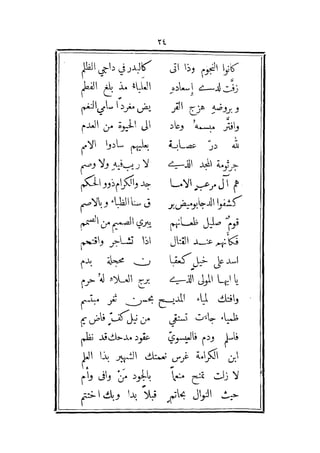 ٢٤
كانوا النجوم وذا اتى كالبدر في داجي الظلم
زفّت لديه إسعاده العلياء مذ بلغ الفطم
وبروضه هزج القر يض مغردًا سامي النغم
وافترّ مبسمه وعاد الى الحيوة من العدم
لله درّ عصابة بعليهم سادوا الامم
جرثومة المجد الذي لا ريب فيه ولا وصم
هم آل مرعب الاما جد والكرام ذوو الحكم
كشفوا الدجا بوميض بر ق سنا الظباء وبالاصم
قوم صليل ظباتهم يبري الصميم من الصمم
فكأنهم عند القتال اذا تشاجر واقتحم
اسد على خيل كعقبا ن محجلة بدم
يا ايها المولى الذي برج العلاء له حرم
وافتك لمياء المديح بحسن ثغر مبتسم
ظمياء جاءت تستقي من نيل كفّ فاض يم
فاسلم ودم فالعيسويّ عقود مدحك قد نظم
ابن الكرامة غرس نعمتك الشهير بذا العلم
لا زلت تمنح منعمًا بالجود مَنْ وافى وأم
حيث النوال بحاتم قبلًا بدا وبك اختتم